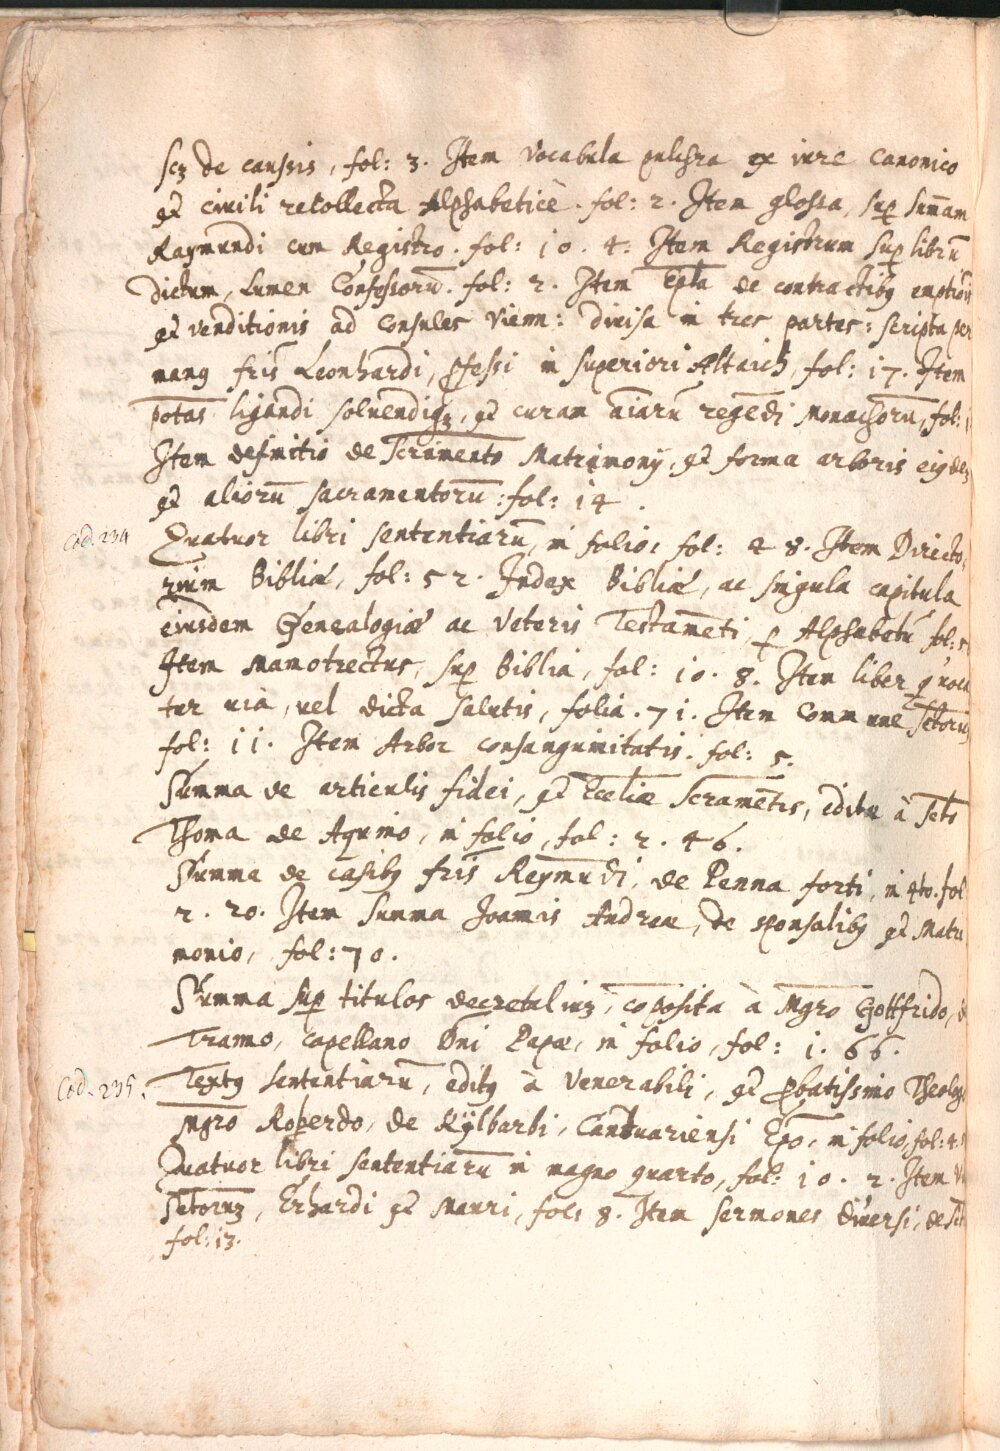 scz de caussis, fol: 3. Item Vocabula pulchra ex iure Canonico
et ciuili recollecta Alphabeticè. fol: 2. Item glossa, sup sum̄am
Raymundi cum Registro. fol: 10. 4. Item Registrum sup librū
dictum, Lumen Confessorū. fol: 2. Item Epl̄a de contractibq emptiōis
et venditionis ad Consules Vienn: diuisa in tres partes: scripta per
manq fr̄is Leonhardi, pfessi in superiori Altaich, fol: 17. Item
potās ligandi soluendiqz, et curam aīarū regēdi Monachorū, fol: 1
Item definitio de Scr̄amento Matrimonij, et forma arboris eiqdez
et aliorū sacramentorū: fol: 14.
Cod. 234
Quatuor libri sententiarū, in folio, fol: 48. Item Directo,
rium Bibliæ, fol: 52. Index Bibliæ, ac singula capitula
eiusdem Genealogiæ ac Veteris Testamēti, p Alphabetū fol: 5
Item Mamotrectus, sup Bibliā, fol: 10. 8. Item liber q uoca
tur uia, uel dicta salutis, folia. 71. Item Commune Sctorum
fol: 11. Item Arbor consanguinitatis. fol: 5.
Summa de articulis fidei, et Eccl̄iæ Scramētis, edita à Scto
Thoma de Aquino, in folio, fol: 2. 46.
Summa de casibq fr̄is Reymūdi, de Penna forti, in 4to. fol
2. 20. Item Summa Joannis Andreæ, de sponsalibq et Matri
monio, fol: 70.
Summa sup titulos decretaliuz, cōposita à Mgro Gottfrido, d
Tranno, capellano Dn̄i Papæ, in folio, fol: 1. 66.
Cod. 235.
Textq sententiarū, editq à Venerabili, et pbatissimo Theologo
Mgro Roperdo, de Kÿlbarbi, Cantuariensi Ep̄o, in folio, fol: 4.
Quatuor libri sententiarū in magno quarto, fol: 10. 2. Item V
Sctoruz, Erhardi et Mauri, fol: 8. Item sermones diuersi, de Sct
fol: 13.